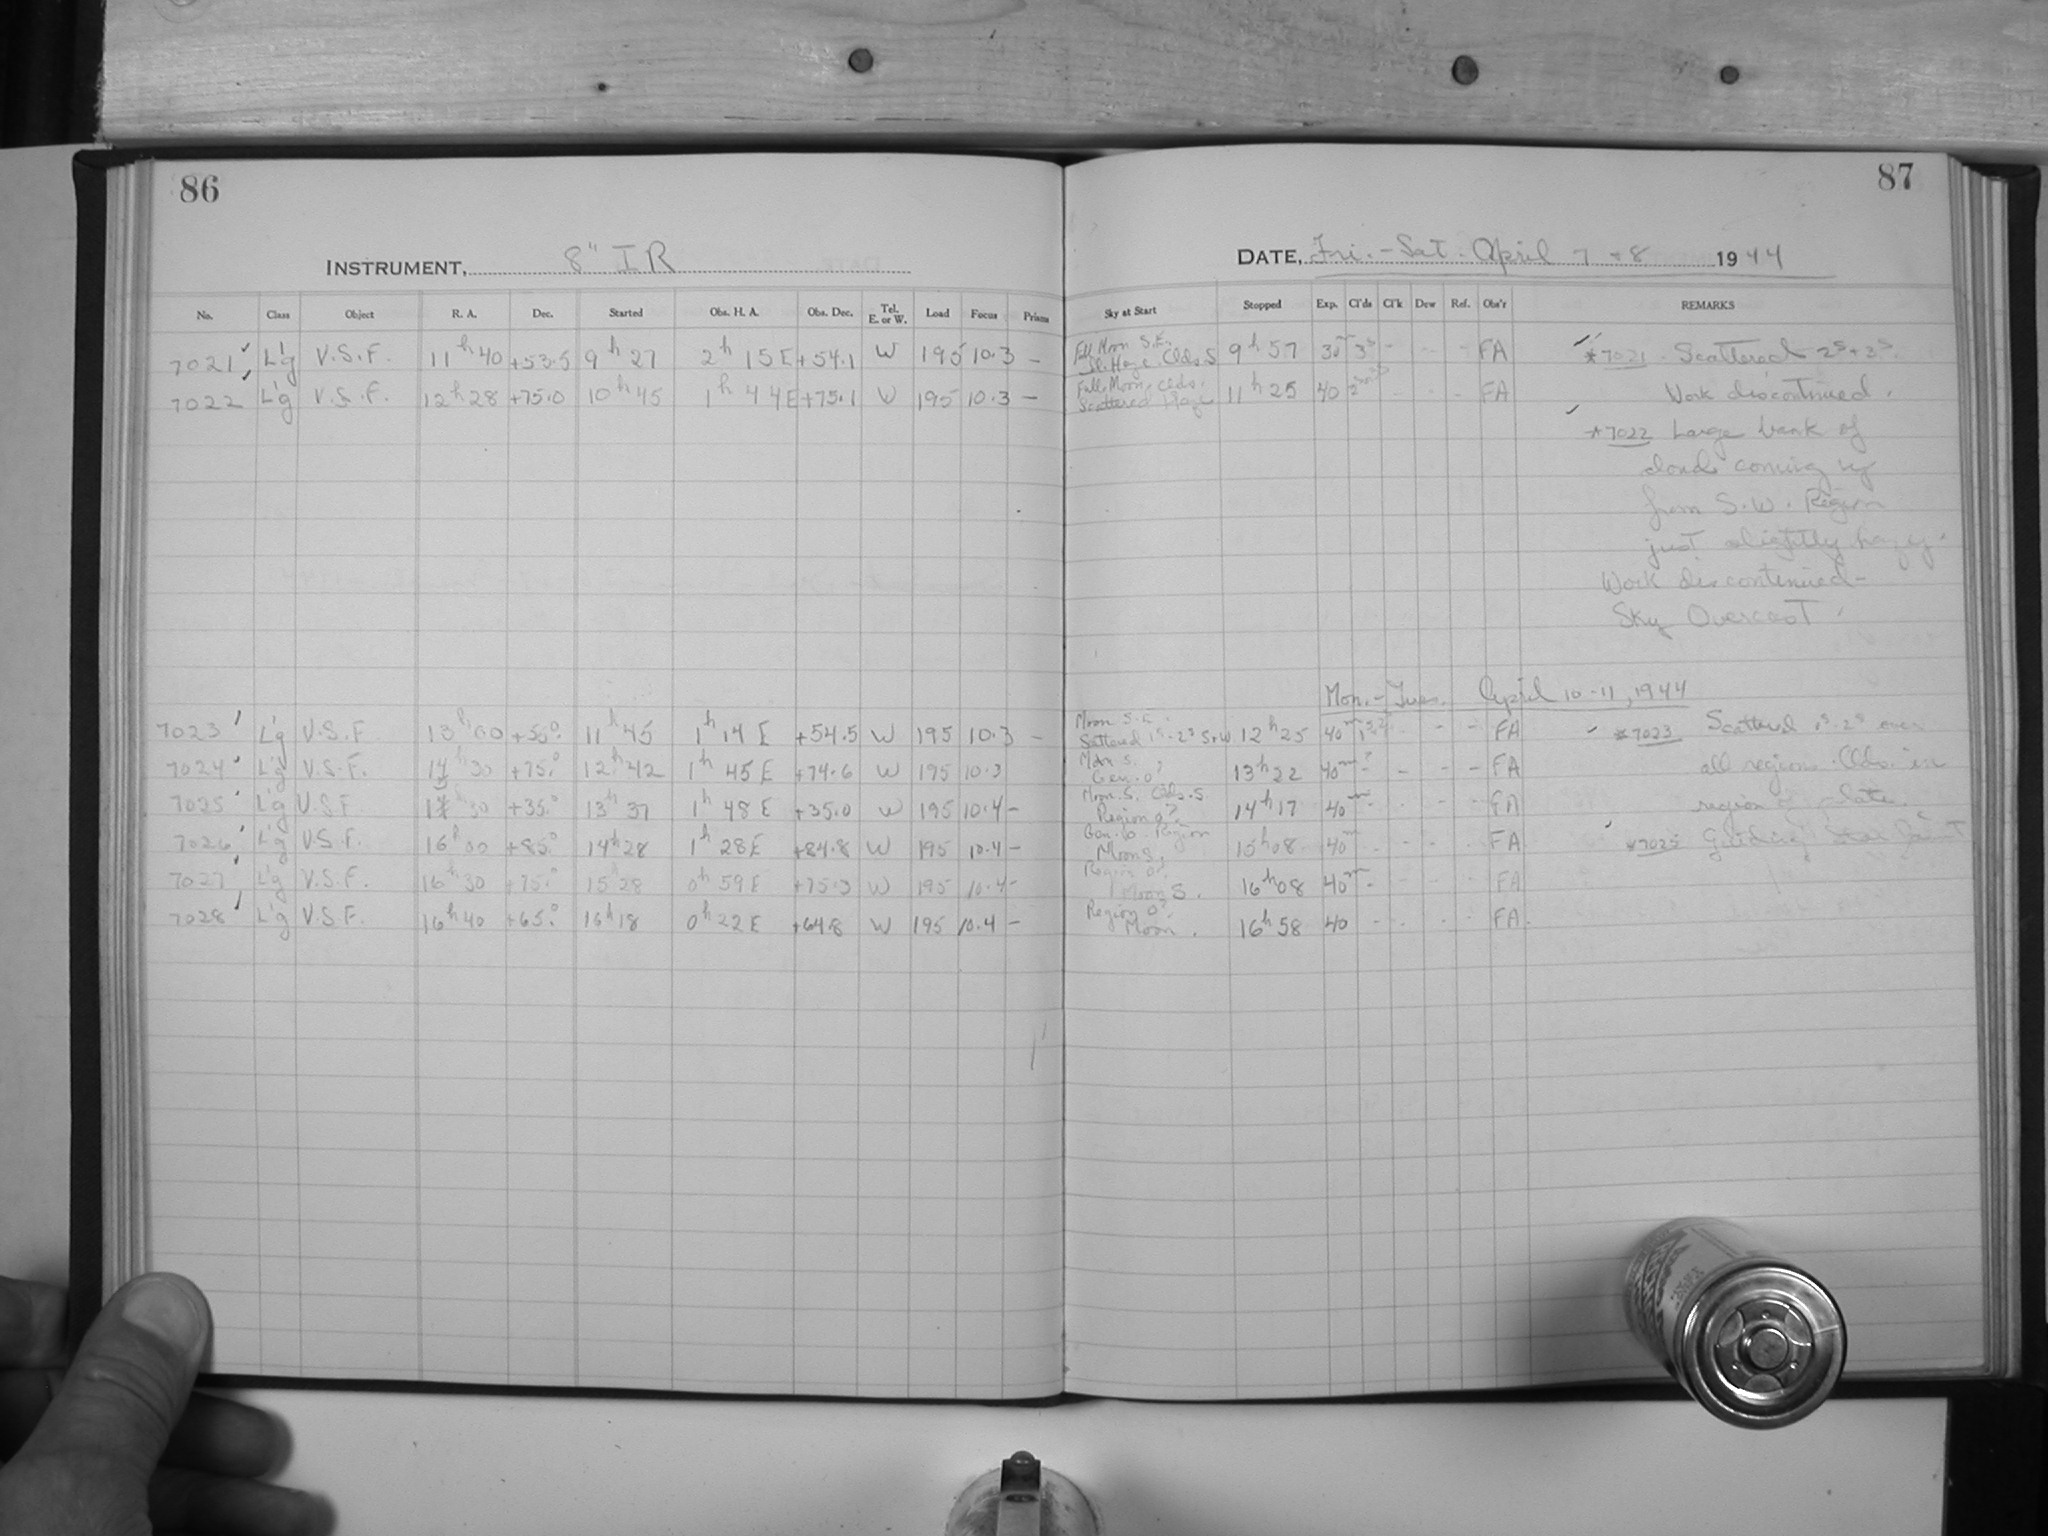 86
INSTRUMENT, 8" I R
No. Class Object R. A. Dec. Started Obs. H. A. Obs. Dec. Tel. E. or W. Load Focus Prism
7021 L'g V.S.F. 11 h 40 +53.5 9 h 27 2 h 15 E +54.1 W 195 10.3 –
7022 L'g V.S.F. 12 h 28 +75.0 10 h 45 1 h 44 E +75.1 W 195 10.3 –
7023 L'g V.S.F 13 h 00 +55.° 11 h 45 1 h 14 E +54.5 W 195 10.3 –
7024 L'g V.S.F. 14 h 30 +75.° 12 h 42 1 h 45 E +74.6 W 195 10.3
7025 L'g V.S.F 15 h 30 +35.° 13 h 37 1 h 48 E +35.0 W 195 10.4 –
7026 L'g V.S.F. 16 h 00 +85.° 14 h 28 1 h 28 E +84.8 W 195 10.4 –
7027 L'g V.S.F. 16 h 30 +75.° 15 h 28 0 h 59 E +75.3 W 195 10.4 –
7028 L'g V.S.F. 16 h 40 +65.° 16 h 18 0 h 22 E +64.8 W 195 10.4 –
87
DATE, Fri. - Sat. April 7 + 8 1944
Sky at Start Stopped Exp. Cl'ds Cl'k Dew Ref. Obs'r REMARKS
Full Moon S.E.
Sl. Haze. Clds. S 9 h 57 30 m 3s – – – FA *7021 - Scattered 2s + 3s.
Full Moon, Clds.
Scattered Haze 11 h 25 40 FA Work discontinued.
*7022 Large bank of
clouds coming up
from S.W. Region
just slightly hazy.
Work discontinued -
Sky Overcast.
Mon. - Tues. April 10 - 11, 1944
Moon S.E.
Scattered 1s - 2s S + W 12 h 25 40 m 1s, 2s – – FA *7023 Scattered 1s - 2s over
Moon S.
Gen. 0? 13 h 22 40 m – – – – FA all region. Clds. in
Moon. S. Clds. S.
Region 0? 14 h 17 40 m FA region of plate.
Gen. 0. Region
Moon S. 15 h 08 40 m FA *7025 Guiding Star faint
Region 0.
Moon S. 16 h 08 40 m – FA
Region 0?
Moon. 16 h 58 40 FA